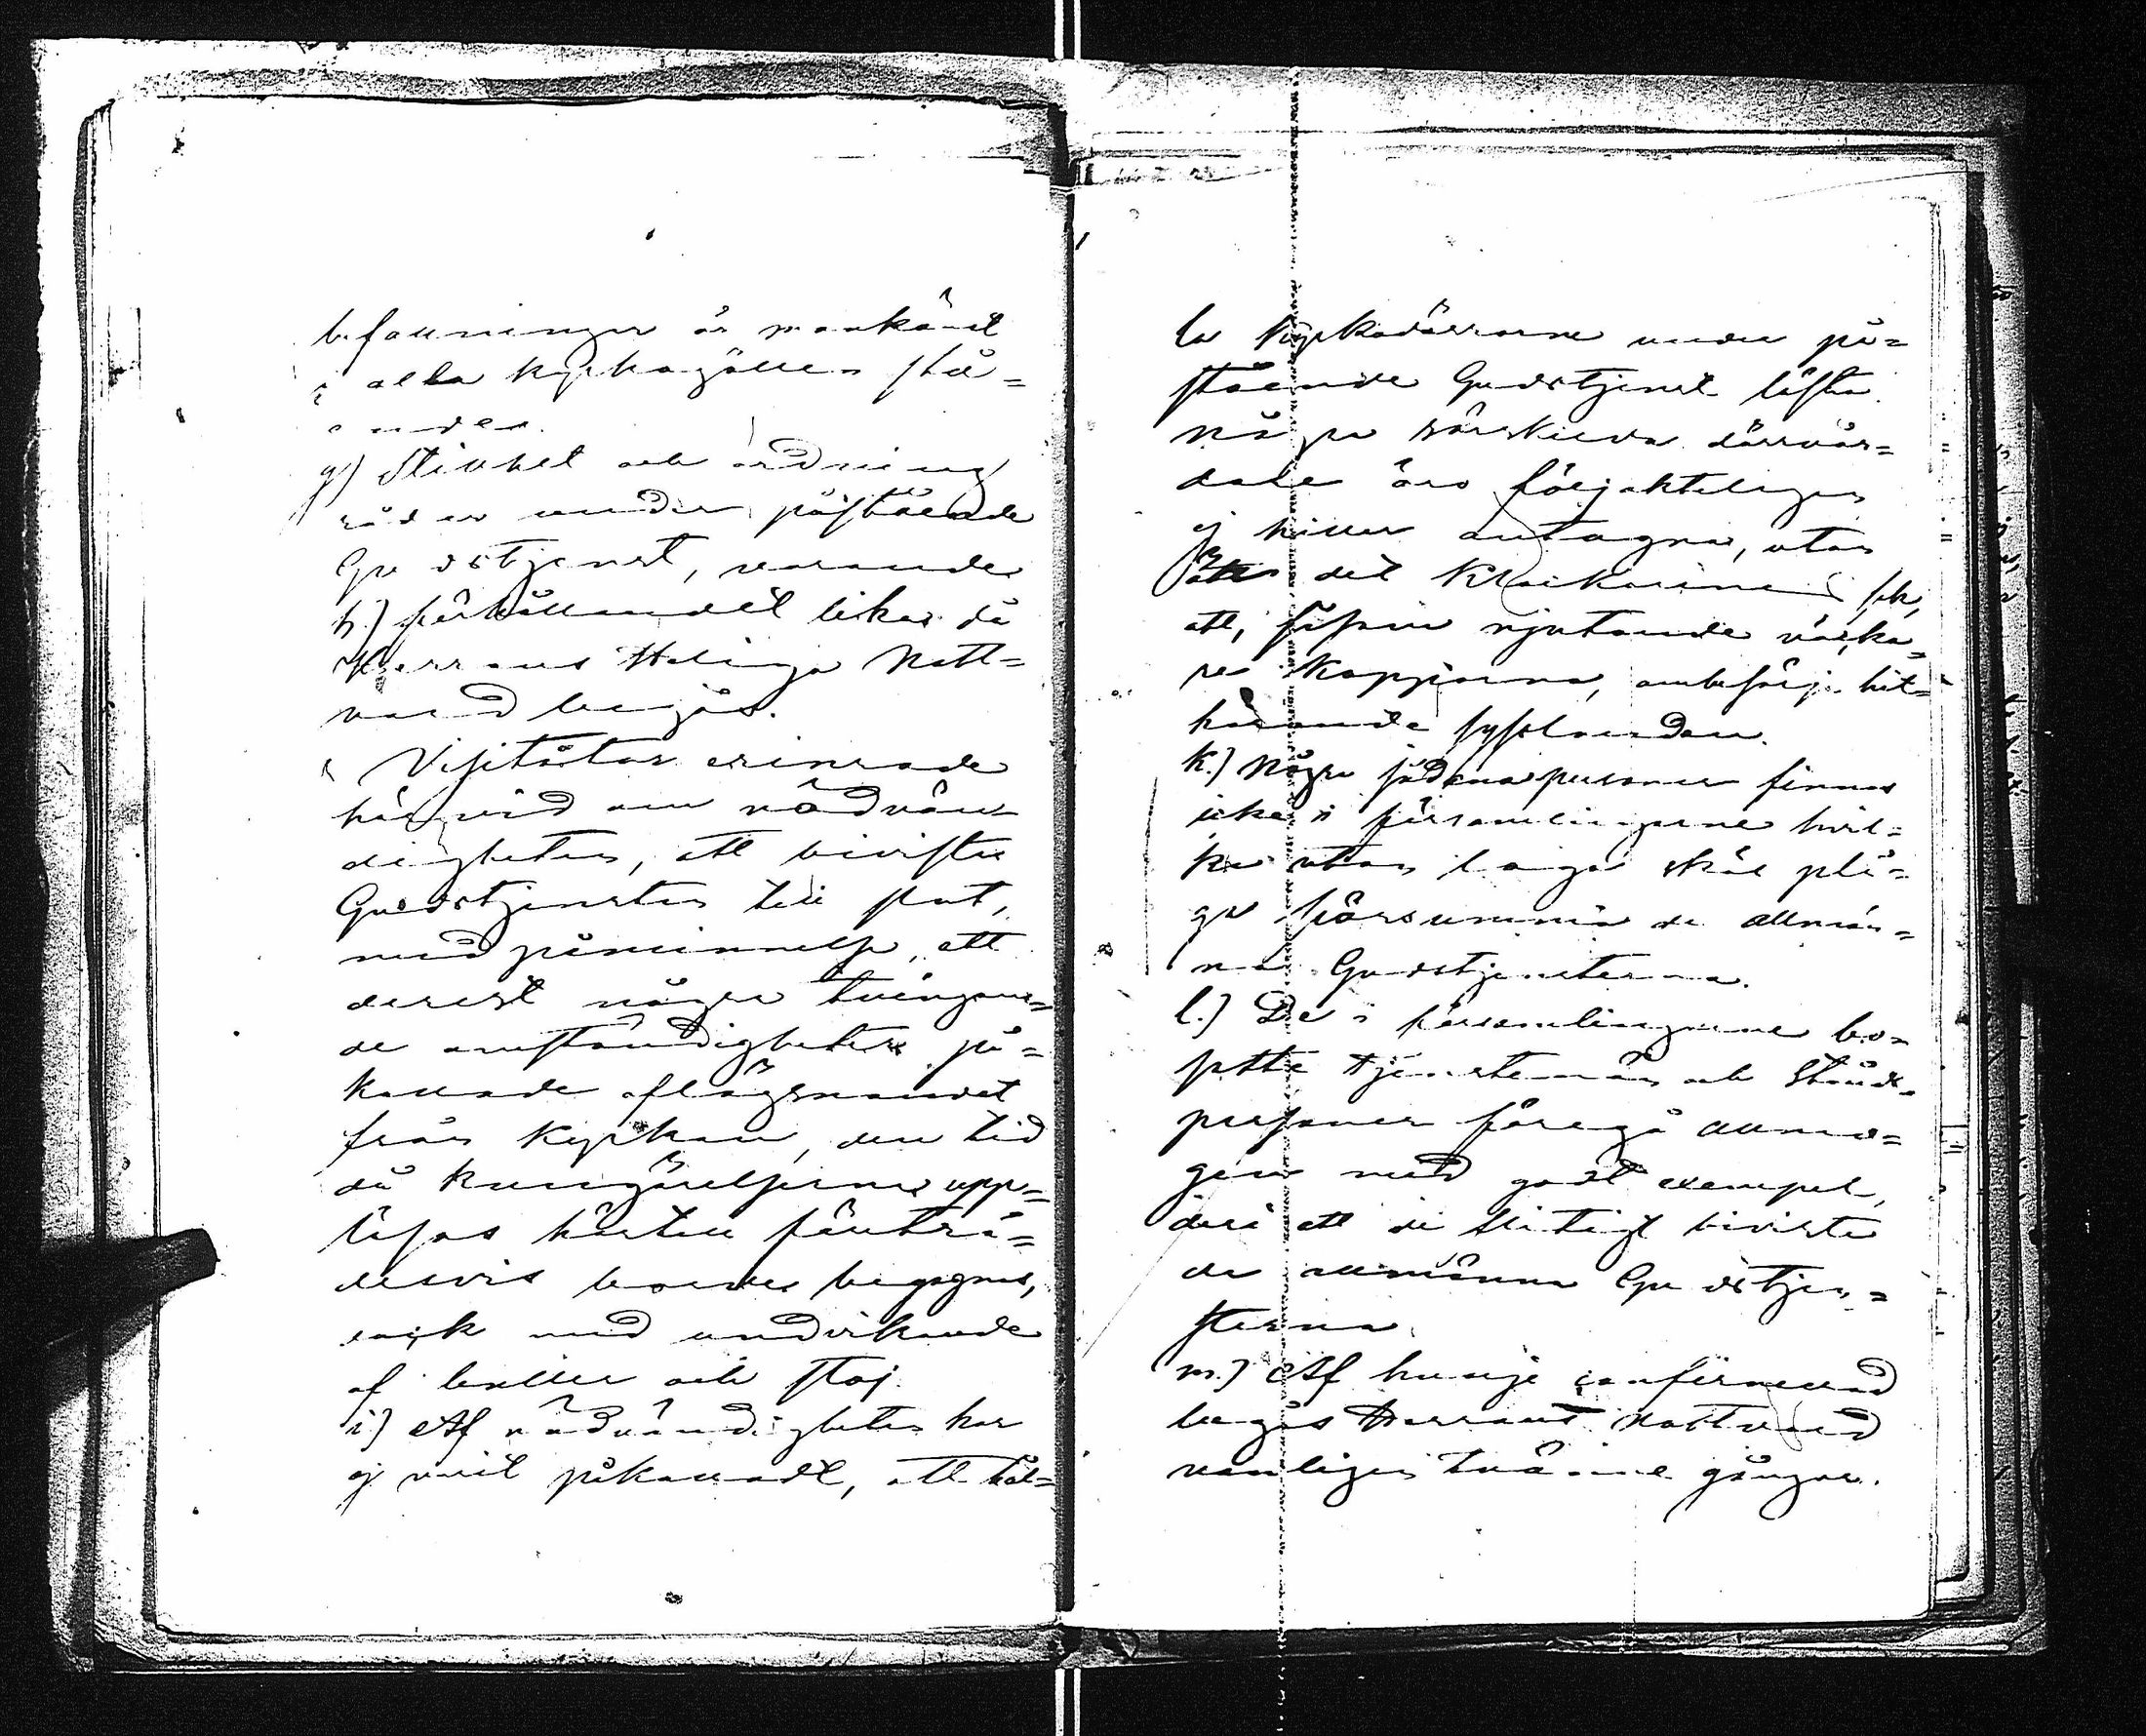 befallningen är
i alla Kyrkogällen stå-
ende.
g) Stillhet och ordning
råder under påstående
Gudstjenst, varande
h.) förhållandet lika då
Herrans Heliga Natt-
vard begås.
Visitator erinrade
härvid om nödvän
digheten, att bivista
Gudstjensten till slut,
med påminnelse, att
derest några tvingan-
de omständigheter på-
kallade aflägsnandet
från Kyrkan, den tid
då kungörelserne upp-
läsas härtill företrä-
desvis borde begagnas,
med undvikande
af buller och stoj.
i) Af nödvändigheten har
ej varit påkalladt, att hål-
la Kyrkodörrarne under på-
stående Gudstjenst låsta.
Några särskilda dörrvak-
tare äro följaktligen
ej heller antagna, utan
det Klockarene
att, njutande
re Kappjorna, ombesörja hit-
hörande sysslandan.
k.) Några sådana personer finnas
icke i församlingarne hvil-
ka utan laga skäl plä-
ga försumma de allmän-
na Gudstjensterna.
l.) De i församlingarne bo-
satte tjenstemän och Stånds-
personer föregå allmo-
gen med godt exempel,
deri att de flitigt bivista
de allmänna Gudstjen-
sterna.
m.) Af hvarje
begås Herrans Nattvard
vanligen tvänne gånger.